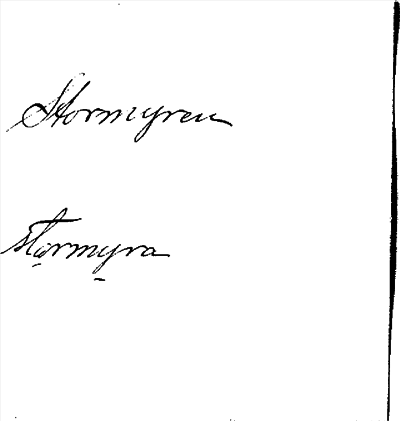 Stormyren
stormyra